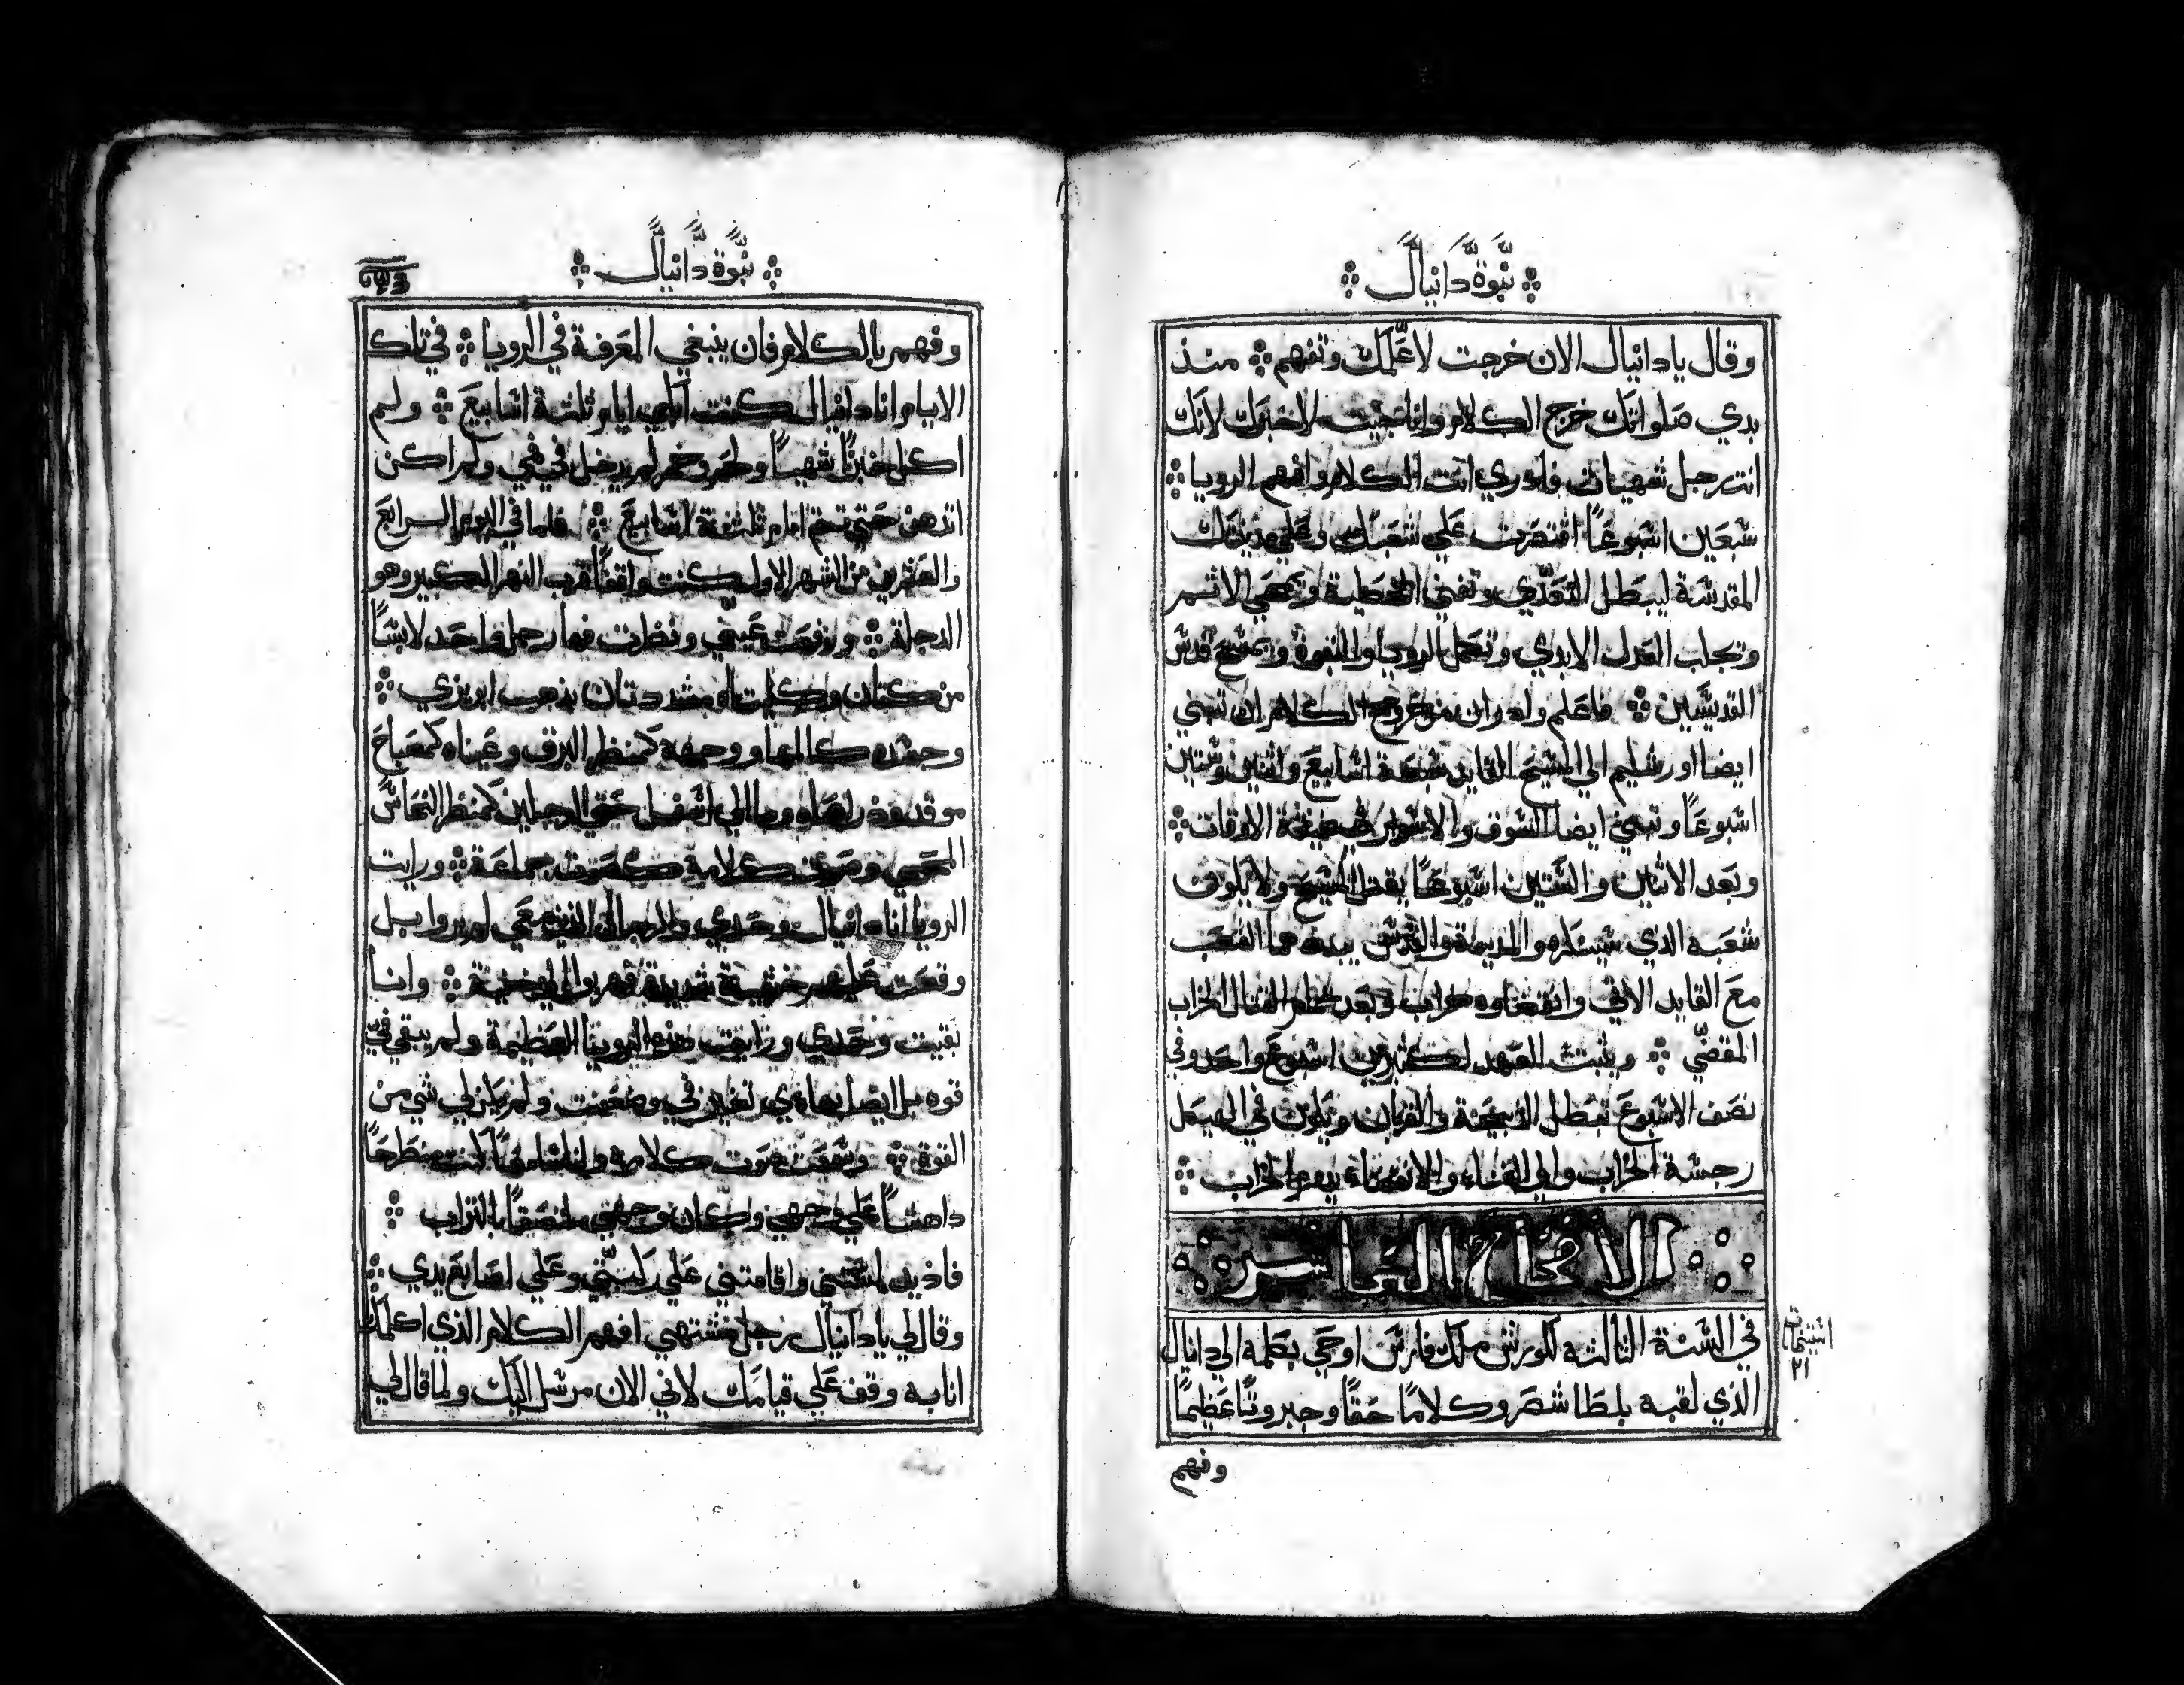 نبوة دانيال
وقال يا دانيال الان خرجت لاعلمك وتفهم ۞ منذ
بدي صلواتك خرج الكلام وانا جيت لاخبرك لانك
انت رجل شهياتى فادري انت الكلام وافهم الرويا ۞
سبعين اسبوعًا اقتصرت علي شعبك وعلي مدينتك
المقدسة ليبطل التعدّي وتفني الخطية ويمحي الاثم
وتجلب العدل الابدي وتكمل الرويا والنبوة ويمسح قدس
القديسين ۞ فاعلم وادر ان من خروج الكلام ان تبني
ايضا اورشليم الي المسيح القايد سبعة اسابيع واثنين وستين
اسبوعًا وتبني ايضا السوق والاسوار في ضيقة الاوقات ۞
وبعد الاثنين والستين اسبوعًا يقتل المسيح ولا يكون
شعبه الذي سينكره والمدينة والقدس يبددهما الشعب
مع القايد الاتي وانقضاوه خراب وبعد تمام القتال الخراب
المقضّي ۞ ويثبت العهد لكثيرين اسبوع واحد وفي
نصف الاسبوع تبطل الذبيحة والقربان ويكون في الهيكل
رجسة الخراب والي الفناء والانقضاء يدوم الخراب ۞
الاصحاح العاشر
في السنة الثالثه لكورش ملك فارس اوحي بكلمه الي دانيال
الذي لقبه بلطاشصر وكلامًا حقًا وجبروتًا عظيمًا
٢١
وفهم
نبوة دانيال
وفهم بالكلام فان ينبغي المعرفة في الرويا ۞ في تلك
الايام انا دانيال كنت ابكي ايام ثلثة اسابيع ۞ ولم
اكل خبزًا شهيًا ولحم وخمر لم يدخل في فمي ولم اكن
اتدهن حتي تتم ايام ثلثة اسابيع ۞ فلما في اليوم الرابع
والعشرين من الشهر الاول كنت واقفًا قرب النهر الكبير وهو
الدجلة ۞ ورفعت عينيّ ونظرت فها رجل واحد لابسًا
من كتان وكليتاه مشددتان بذهب ابريزي ۞
وجسده كالمها ووجهه كمنظر البرق وعيناه كمصباح
موقد وذراعاه وما الي اسفل حتي الرجلين كمنظر النحاس
المحمي وصوت كلامه كصوت جماعة ۞ ورايت
الرويا انا دانيال وحدي والرجال الذين معي لم يروا بل
وقعت عليهم خشية شديدة فهربوا الي خبية ۞ وانا
بقيت وحدي ورايت هذه الرويا العظيمة ولم يبقي فيّ
قوه بل ايضا بهاي تغير فيّ وضعفت ولم يكن لي شي من
القوة ۞ وسمعت صوت كلامه وانا سامعًا كنت منطرحًا
داهشًا علي وجهي وكان وجهي ملتصقًا بالتراب ۞
فاذ يد لمستني واقامتني علي ركبتيّ وعلي اصابع يدي ۞
وقال لي يا دانيال رجل مشتهي افهم الكلام الذي اكلمك
انا به وقف علي قيامك لاني الان مرسل اليك ولما قال لي